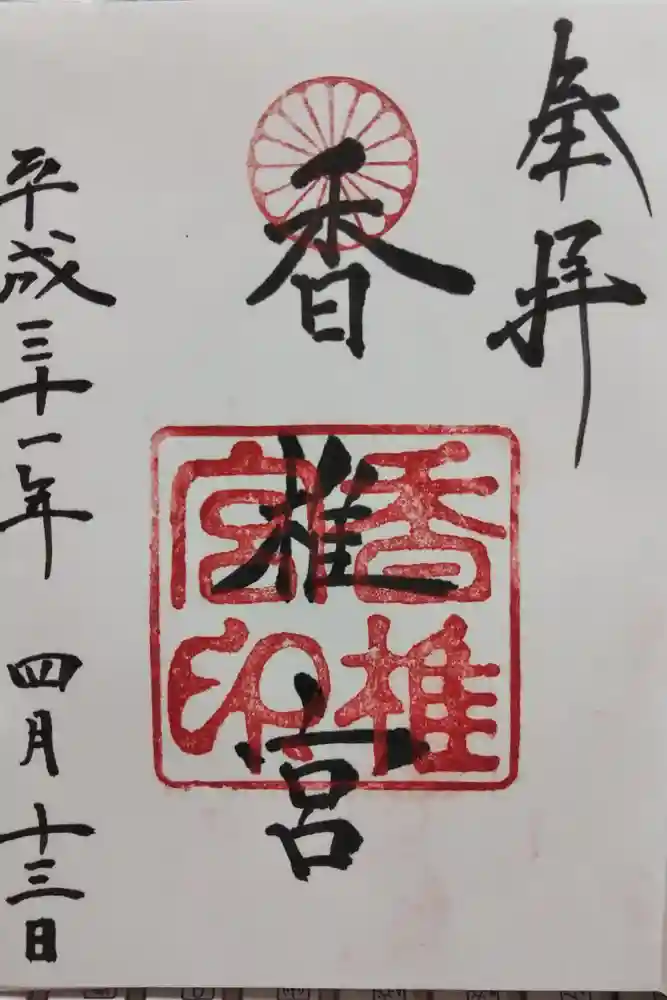 奉拝
香椎宮
香椎宮印
平成三十一年 四月 十三日